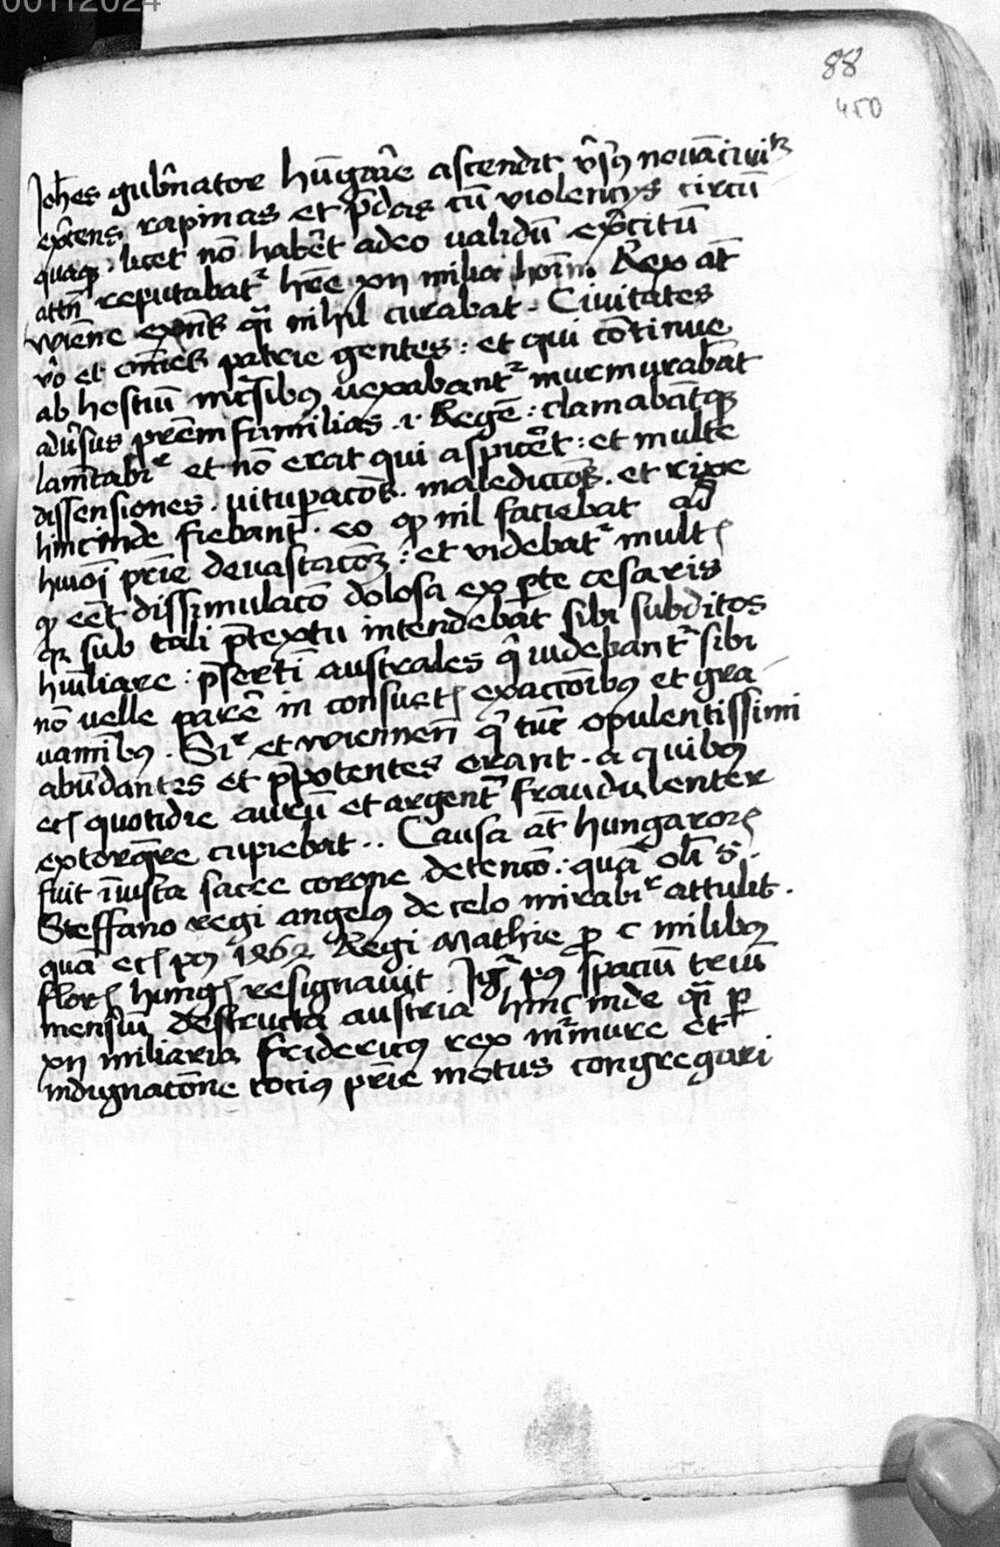 00112024
88
450
Joh̄es gub̄nator hūgarie ascendit v̄sꝰ nouā ciuitꝫ
ex̄cens rapinas et p̄das cū violencijs circū
quaqꝫ . licet nō hab̄et adeo ualidū ex̄citū
attn̄ reputabatʳ hr̄e xij milia hoīm . Rex at̄
wiēne exn̄s q̄i nihil curabat . Ciuitates
v̄o et om̄es patrie gentes : et qui cōtinue
ab hostiū incūsibꝰ uexabantʳ murmurabāt
adūsus prēm familias .i. Regē : clamabātqꝫ
lamētabirʳ et nō erat qui aspic̄et : et multe
dissensiones . uitup̄acōes . maledictōes . et rixe
hincinde fiebant . eo qꝫ nil faciebat ad
hmōi pr̄ie deuastacōꝫ : et videbatʳ multꝭ
qꝫ eēt dissimulacō dolosa ex ꝑte cesaris
qꝫ sub tali p̄textu intendebat sibi subditos
hūiliare : p̄sertī australes q̄ uidebantʳ sibi
nō uelle parēe in consuetꝭ exaccōibꝰ et gra
uamībꝰ . Sirʳ et wiennen̄ q̄ tūc opulentissimi
abūdantes et p̄potentes erant . a quibꝰ
ecꝭ quotidie aurū et argentū fraudulenter
extorq̄re cupiebat .. Causa at̄ hungarorꝝ
fuit iīusta sacre corone detencō : quā olī s.
Steffano regi angelꝰ de celo mirabirʳ attulit .
quā ecꝭ pꝰ 1862 Regi Mathie ꝓ c milibꝰ
florꝭ hungꝭ resignauit . Jgʳ pꝰ spaciū triū
mensiū destructa austria hinc inde q̄i ꝑ
xij miliaria fridericꝰ rex mʳmure et
indignacōne tociꝰ pr̄ie motus congregari